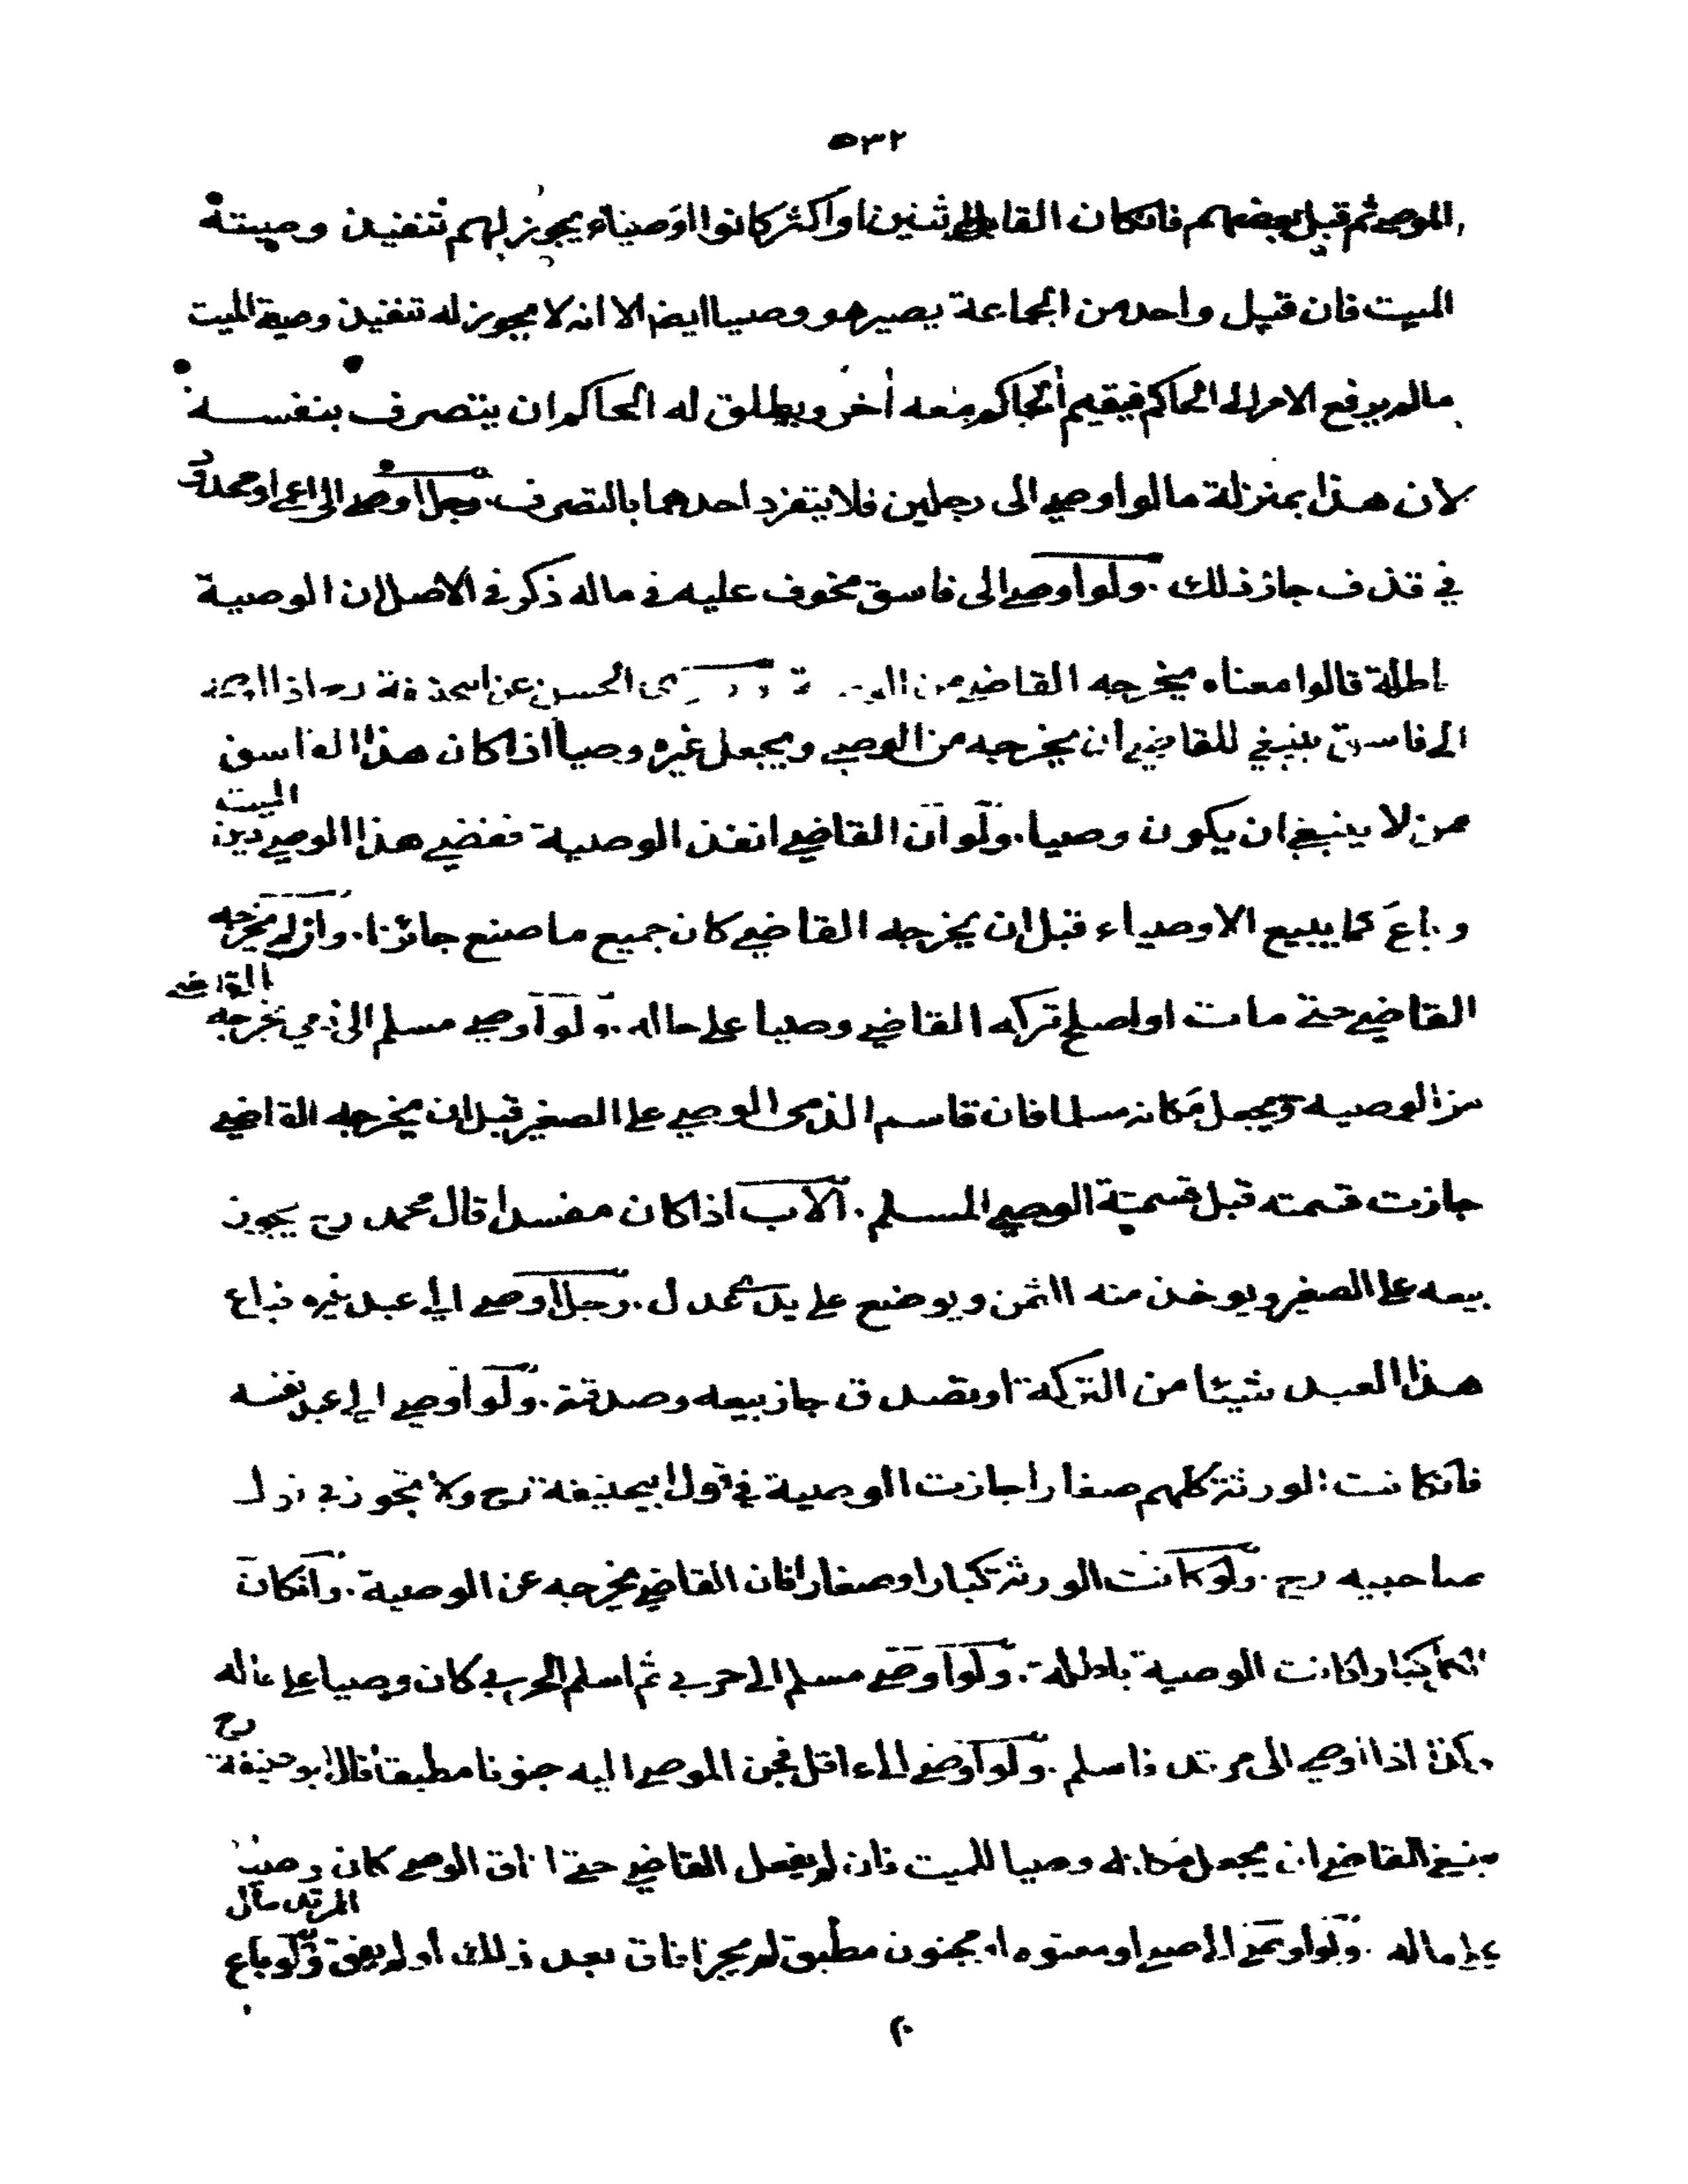 ٥٣٢
الموصى ثم قبل بعضهم فانكان القابل اثنين او اكثر كانوا اوصياء يجوز لهم تنفيذ وصيتة
الميت فان قبل واحد من الجماعة يصير هو وصيا ايضا الا انه لا يجوز له تنفيذ وصية الميت
مالم يرفع الامر الى الحاكم فيقيم الحاكم معه أخر ويطلق له الحاكم ان يتصرف بنفسه
لان هذا بمنزلة ما لو اوصى الى رجلين فلا يتفرد احدهما بالتصرف . رجل اوصى الى اعمى او محدود
في قذف جاز ذلك . ولو اوصى الى فاسق مخوف عليه في ماله ذكر في الاصل ان الوصية
باطلة قالوا معناه يخرجه القاضي من الحسن عن ابيحنيفة رح اذا اوصى
الى فاسق ينبغي للقاضي أن يخرجه من الوصي ويجعل غيره وصيا اذا كان هذا الفاسق
ممن لا ينبغي ان يكون وصيا . ولو ان القاضي انفذ الوصية فقضى هذا الوصي دين الميت
وباع كما يبيع الاوصياء قبل ان يخرجه القاضي كان جميع ما صنع جائزا . وان لم يخرجه
القاضي حتى مات او اصلح تركه القاضي وصيا على حاله . ولو اوصى مسلم الى ذمي يخرجه القاضي
من الوصيه ويجعل مكانه مسلما فان قاسم الذمى الوصي على الصغير قبل ان يخرجه القاضي
جازت قسمته قبل قسمتة الوصي المسلم . الاب اذا كان مفسدا قال محمد رح يجوز
بيعه على الصغير ويوخذ منه الثمن ويوضع على يدى عدل . رجل اوصى الى عبد غيره فباع
هذا العبد شيئا من التركة او تصدق جاز بيعه وصدقته . ولو اوصى الى عبد نفسه
فانكانت الورثة كلهم صغارا جازت الوصية في قول ابيحنيفة رح ولا تجوز في قول
صاحبيه رح . ولو كانت الورثة كبارا وصغارا فان القاضي يخرجه عن الوصية . وانكان
كبارا كانت الوصية باطلة . ولو اوصى مسلم الى حربي ثم اسلم الحربي كان وصيا على حاله
وكذا اذا اوصى الى مرتد فاسلم . ولو اوصى الى عاقل فجن الموصى اليه جنونا مطبقا قال ابو حنيفة رح
ينبغي للقاضي ان يجعل مكانه وصيا للميت فان لم يفعل القاضي حتى افاق الوصي كان وصيا
على حاله . ولو اوصى الى صبي او معتوه او مجنون مطبق لم يجز افاق بعد ذلك أو لم يفق ولو باع المرتد مال
٢